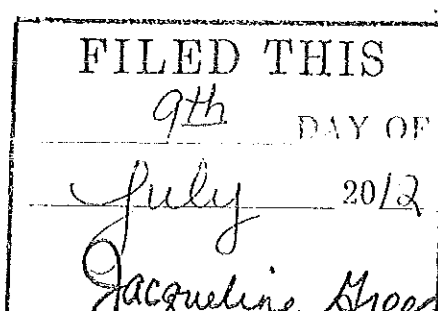 FILED THIS
9th DAY OF
July 2012
Jacqueline